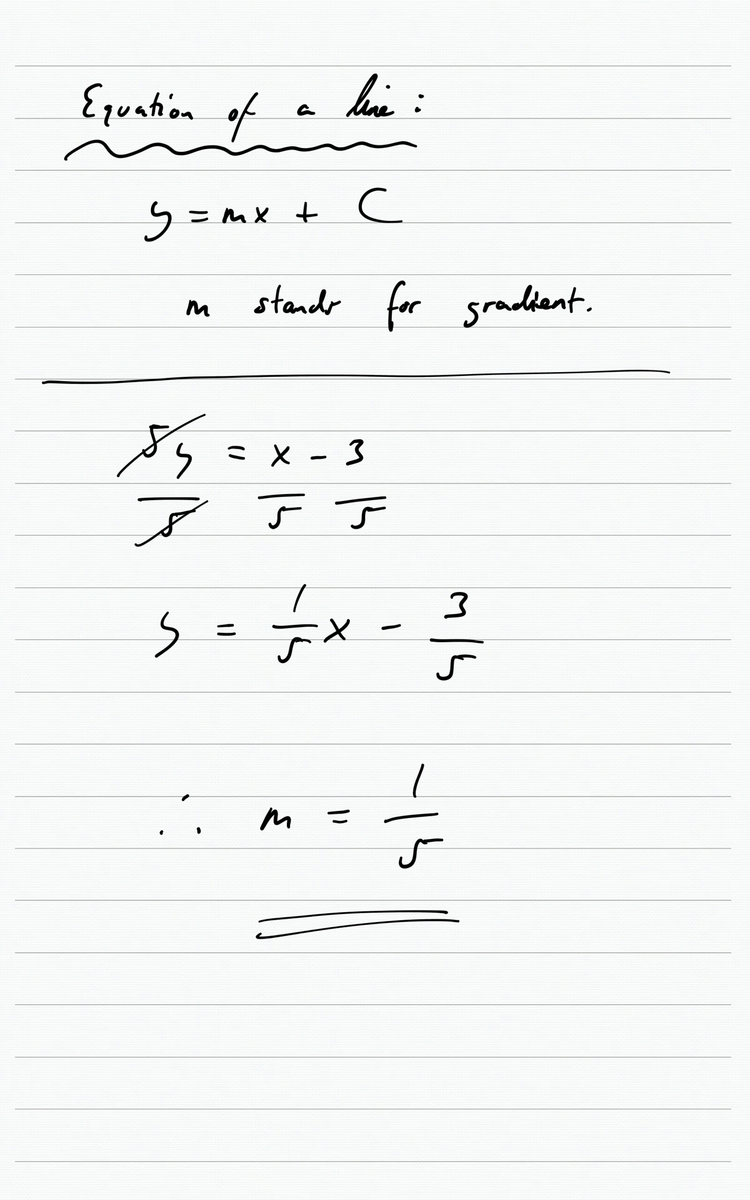 Equation of a line:
y = mx + C
m stands for gradient.
5y = x - 3
5 5 5
y = 1/5 x - 3/5
∴ m = 1/5